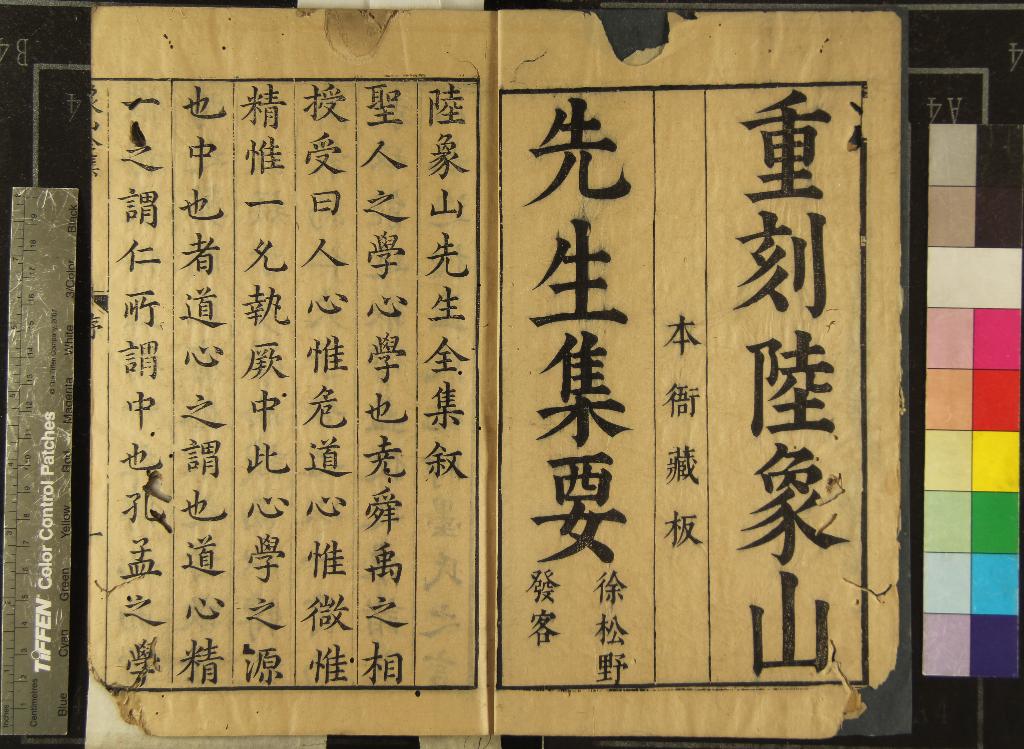 重刻陸象山
本衙藏板
先生集要
徐松野
發客
陸象山先生全集叙
聖人之學心學也尭舜禹之相
授受曰人心惟危道心惟微惟
精惟一允執厥中此心學之源
也中也者道心之謂也道心精
一之謂仁所謂中也孔孟之學
序
一
TIFFEN Color Control Patches
© The Tiffen Company, 2007
Inches
Centimetres
Blue
Cyan
Green
Yellow
Red
Magenta
White
3/Color
Black
B4
4
A4
4